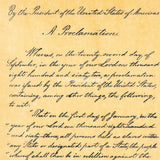 By the President of the United States of America:
A Proclamation.
Whereas, on the twenty-second day of
September, in the year of our Lord one thousand
eight hundred and sixty two, a proclamation
was issued by the President of the United States,
containing, among other things, the following,
to wit:
"That on the first day of January, in the
year of our Lord one thousand eight hundred
and sixty-three, all persons held as slaves within
any State or designated part of a State, the people
whereof shall then be in rebellion against the